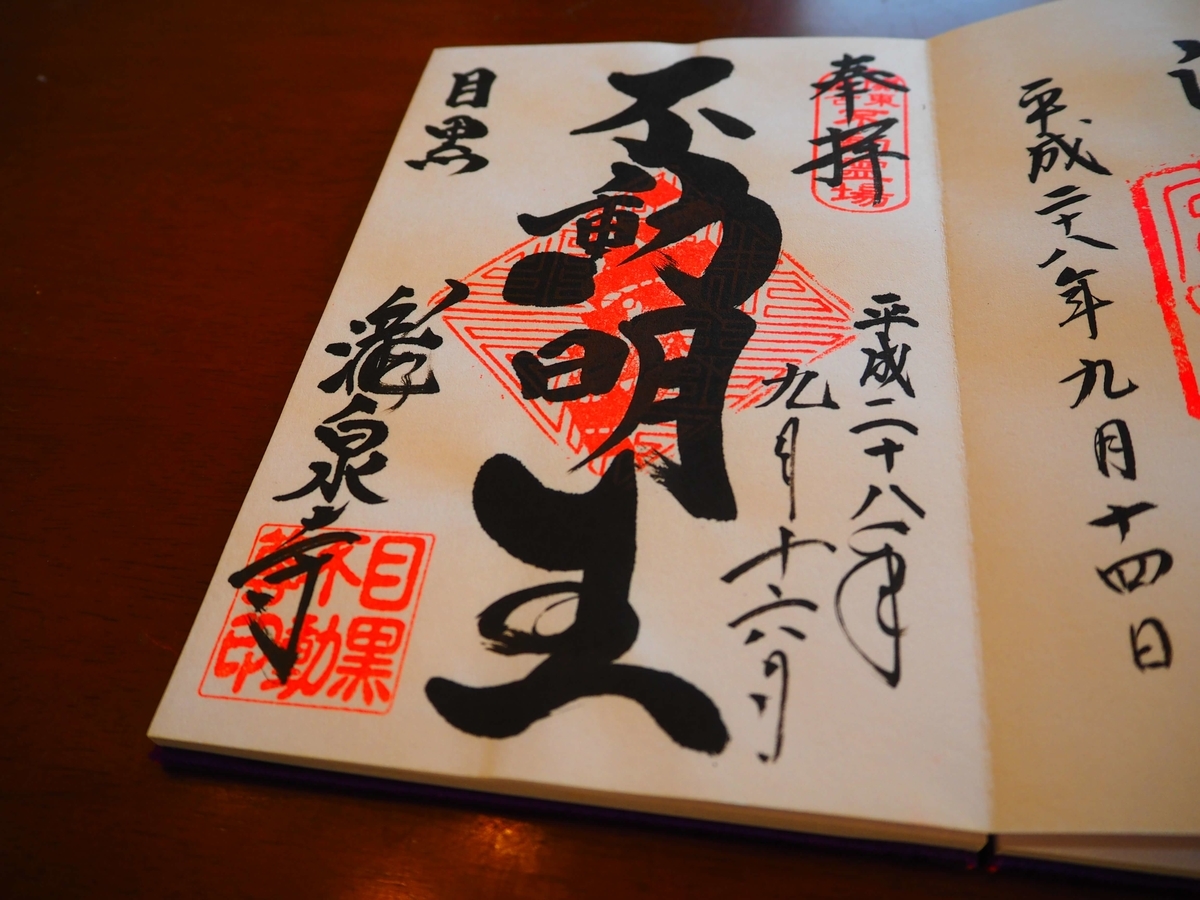 平成二十八年九月十四日
奉拝
霊場
平成二十八年
九月十六日
不動明王
目黒
瀧泉寺
目黒
不動
尊印